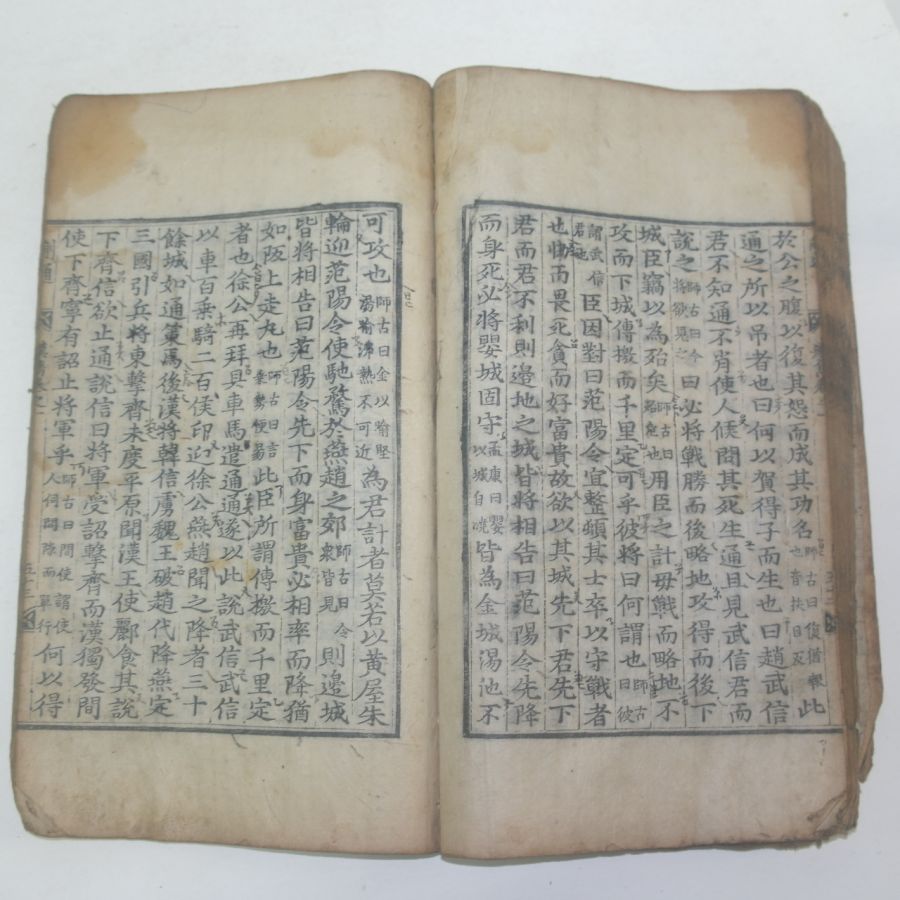 於公之腹以復其怨而成其功名師古曰復猶報也音扶目反此
通之所以吊者也曰何以賀得子而生也曰趙武信
君不知通不肖使人候問其死生通且見武信君而
說之師古曰今將欲見之曰必將戰勝而後略地攻得而後下
城臣竊以為殆矣師古曰殆危也用臣之計毋戰而略地不
攻而下城傳檄而千里定可乎彼將曰何謂也師古曰彼
謂武信君也臣因對曰范陽令宜整頓其士卒以守戰者
也怯而畏死貪而好富貴故欲以其城先下君先下
君而君不利則邊地之城皆將相告曰范陽令先降
而身死必將嬰城固守孟康曰嬰以城自繞皆為金城湯池不
可攻也師古曰金以喻堅湯喻沸熱不可近為君計者莫若以黃屋朱
輪迎范陽令使馳騖於燕趙之郊師古曰令衆皆見則邊城
皆將相告曰范陽令先下而身富貴必相率而降猶
如阪上走丸也師古曰言乗勢便易此臣所謂傳檄而千里定
者也徐公再拜具車馬遣通通遂以此說武信武信
以車百乗騎二百侯印迎徐公燕趙聞之降者三十
餘城如通策焉後漢將韓信虜魏王破趙代降燕定
三國引兵將東擊齊未度平原聞漢王使酈食其說
下齊信欲止通說信曰將軍受詔擊齊而漢獨發間
使下齊寧有詔止將軍乎師古曰間使謂使人伺間隙而單行何以得
蒯通